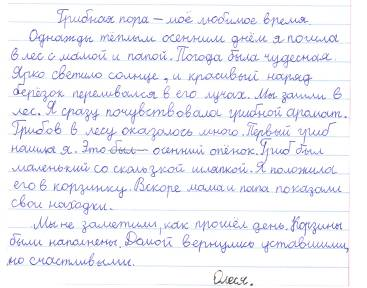 Грибная пора – моё любимое время.
Однажды тёплым осенним днём я пошла
в лес с мамой и папой. Погода была чудесная.
Ярко светило солнце, и красивый наряд
берёзок переливался в его лучах. Мы зашли в
лес. Я сразу почувствовала грибной аромат.
Грибов в лесу оказалось много. Первый гриб
нашла я. Это был – осенний опёнок. Гриб был
маленький со скользкой шляпкой. Я положила
его в корзинку. Вскоре мама и папа показали
свои находки.
Мы не заметили, как прошёл день. Корзины
были наполнены. Домой вернулись уставшими,
но счастливыми.
Олеся.